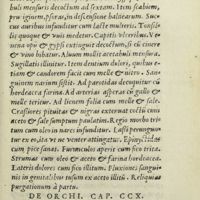 buli mensuris decoctum ad sextam. Item scabiem,
prurigines, psoras, in descensione balnearum. Suc
cus auribus infunditur cum lacte mulierū. Tonsil-
lis quoque & uuis medetur. Capitis ulceribus. Ve-
nena apū & gypsi extinguit decoctum, si cū cinere
& uino bibatur. Aluum mollit aceto cum mensura.
Sugillatis illinitur. Item dentium dolori, quibus e-
tiam & candorem facit cum melle & utero. San-
guinem narium sistit. Ad parotidas decoquitur cū
hordeacea farina. Ad arterias asperas cū gallo &
melle teritur. Ad lienem folia cum melle & sale.
Crassiores pituitas & nigras extrahit coctū cum
aceto & sale sumptum paulatim. Regio morbo tri-
tum cum oleo in nares infunditur. Lassi perungun-
tur ex eo, ita ne uenter attingatur. Epinyctidas
cum pice sanat. Furunculos aperit cum fico trita.
Strumas cum oleo & aceto & farina hordeacea.
Lateris dolores cum fico illitum. Fluxiones sangui-
nis in genitalibus tusum ex aceto illiti. Reliquas
purgationum à partu.
DE ORCHI. CAP. CCX.